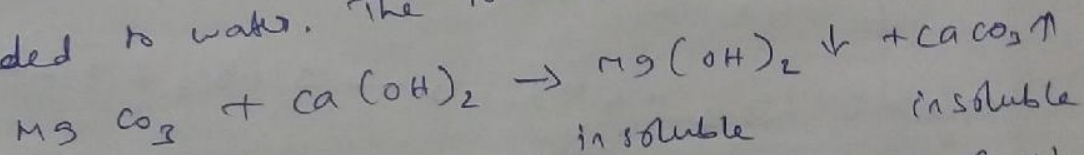 ded to water. The
Mg CO3 + Ca(OH)2 → Mg(OH)2 ↓ + CaCO3 ↑
insoluble insoluble